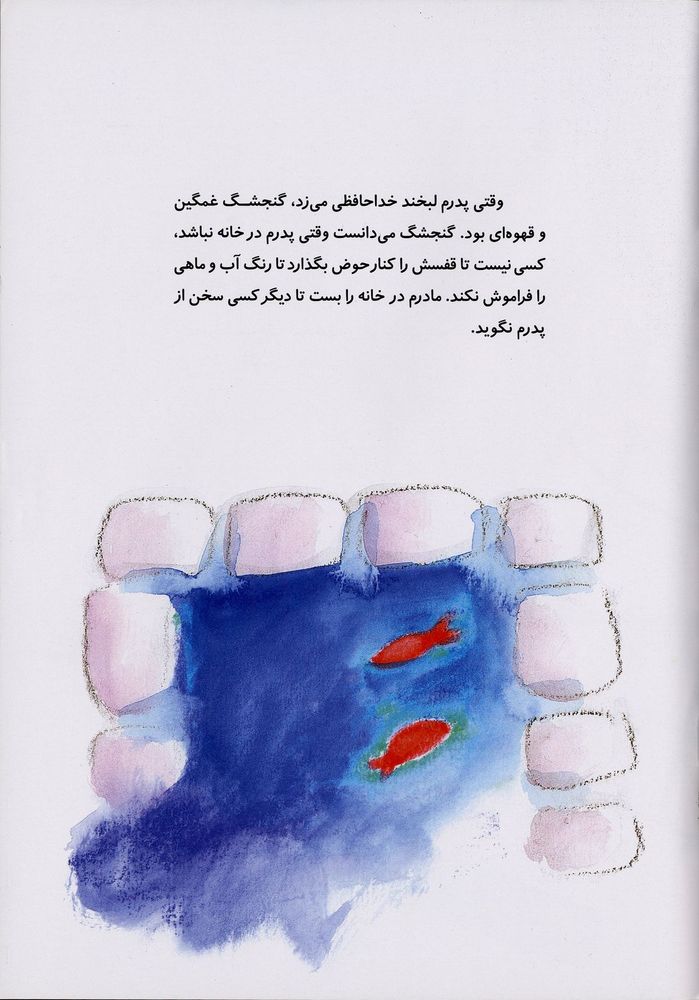 وقتی پدرم لبخند خداحافظی می‌زد، گنجشگ غمگین
و قهوه‌ای بود. گنجشگ می‌دانست وقتی پدرم در خانه نباشد،
کسی نیست تا قفسش را کنار حوض بگذارد تا رنگ آب و ماهی
را فراموش نکند. مادرم در خانه را بست تا دیگر کسی سخن از
پدرم نگوید.